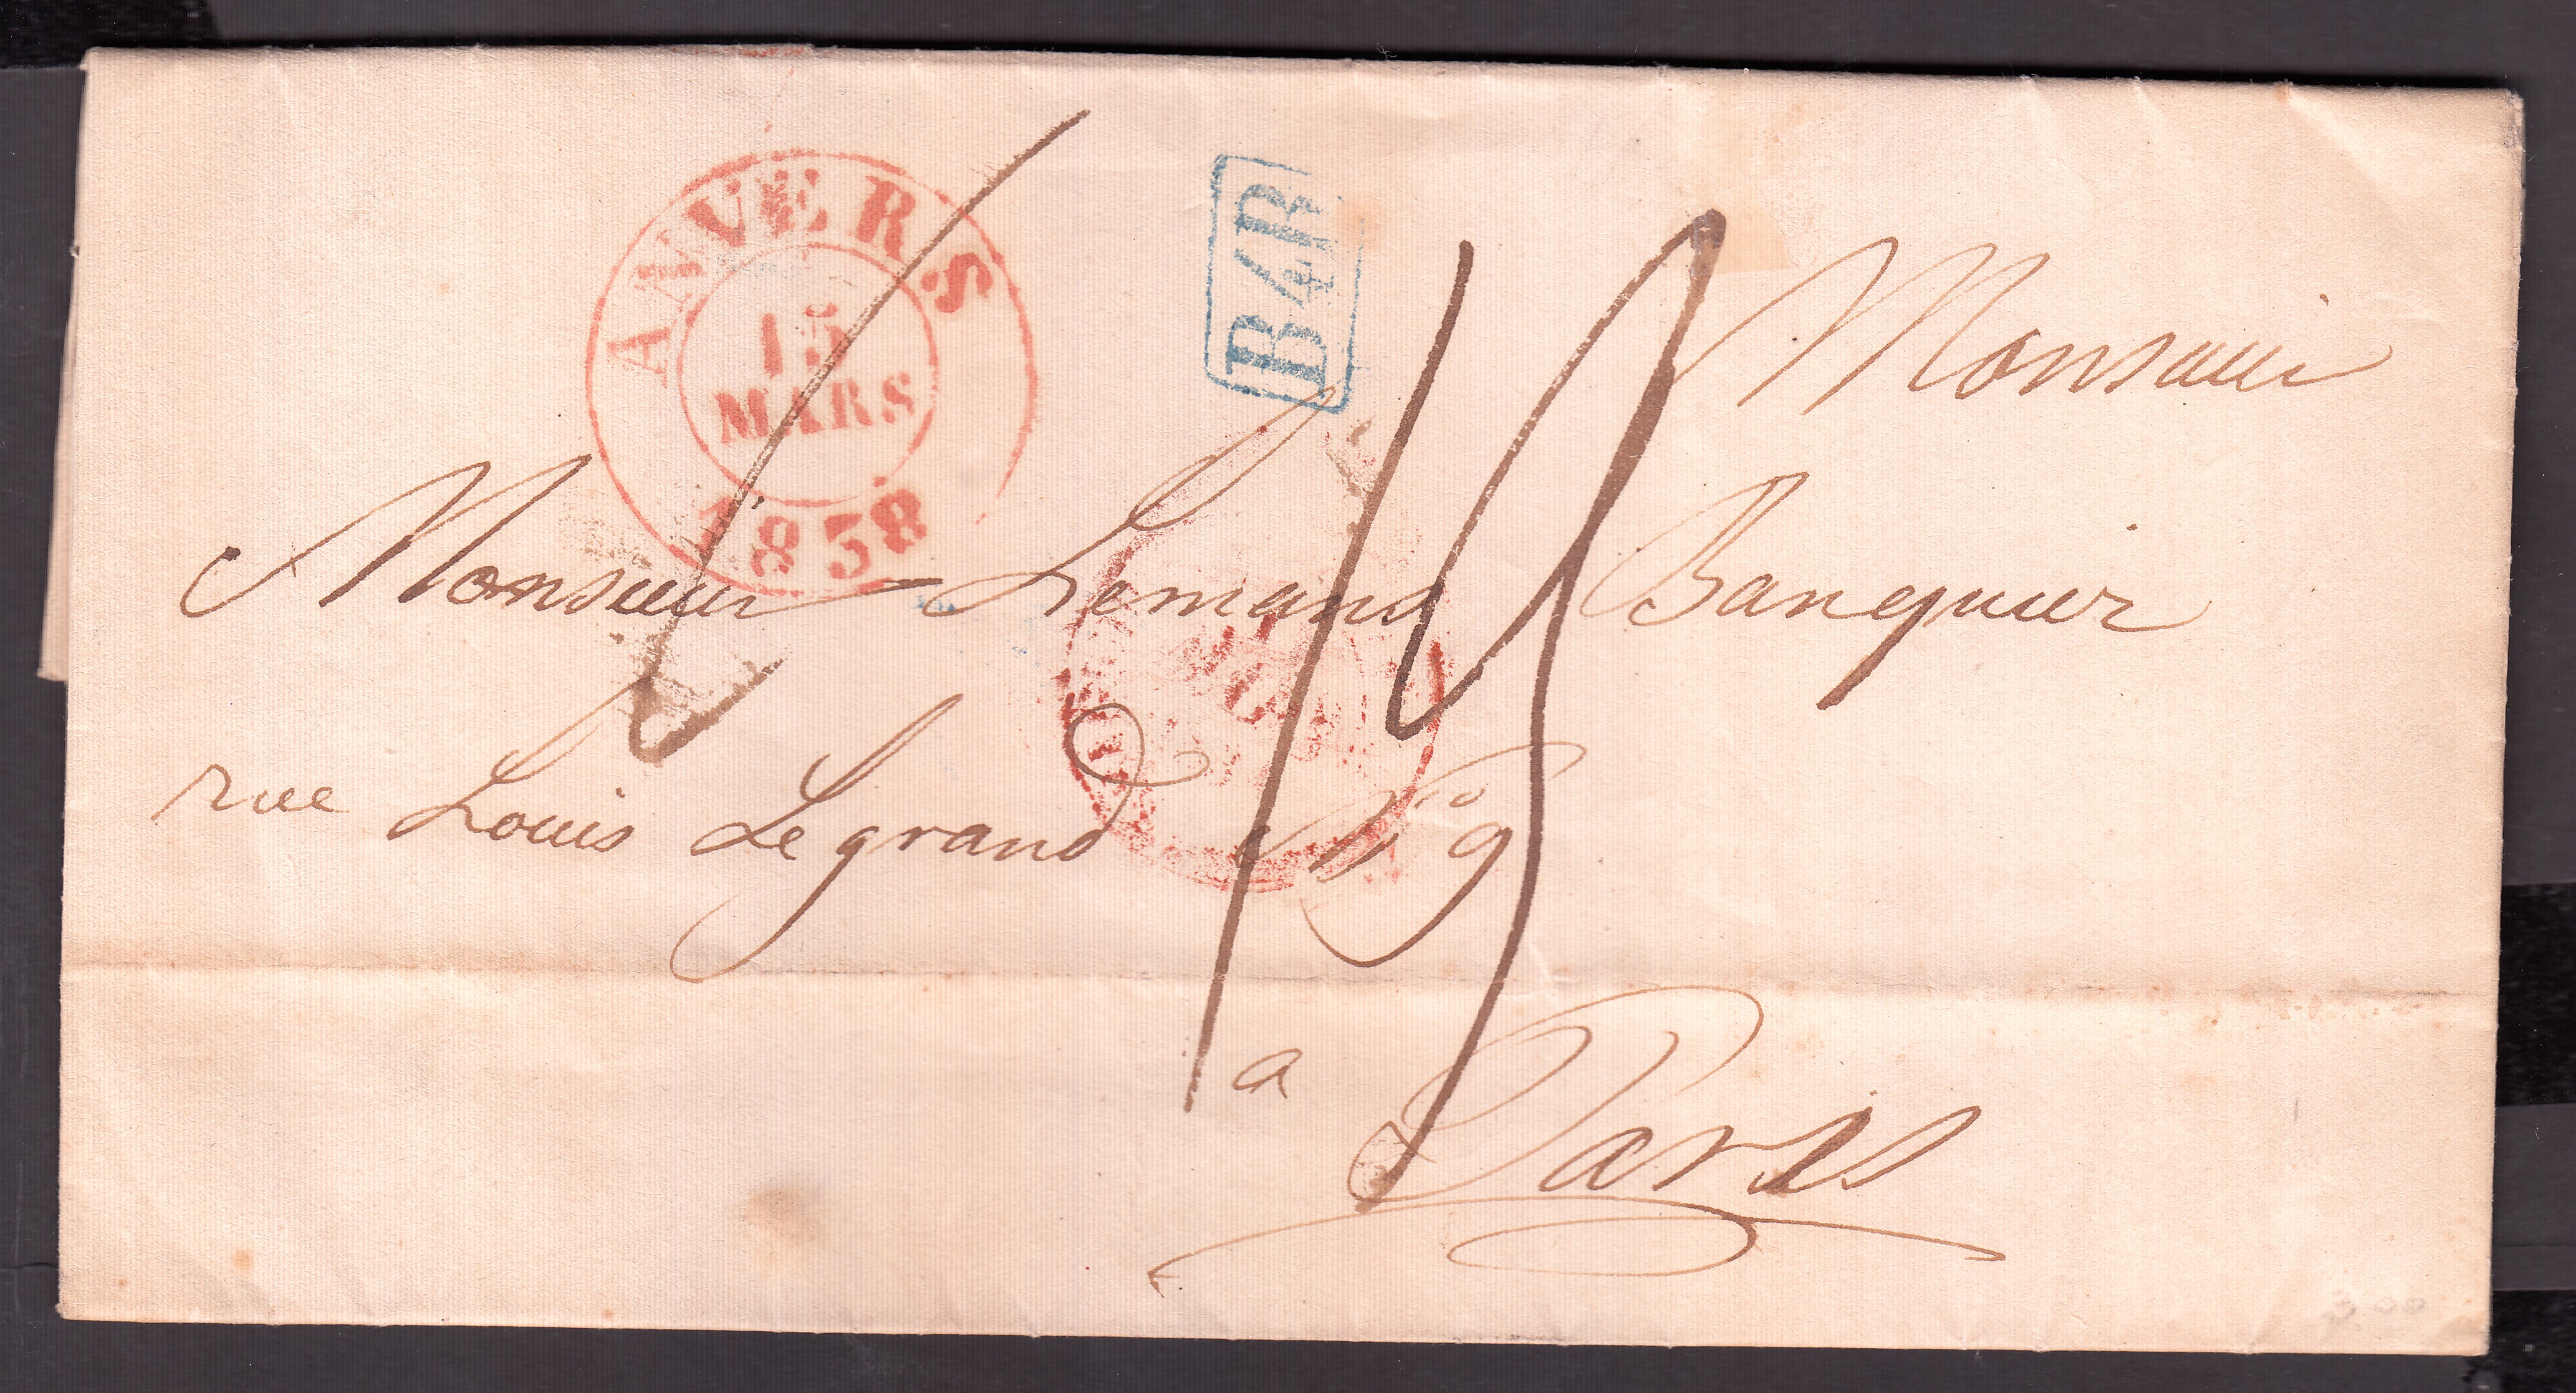 ANVERS
15
MARS
1838
B4R
15
Monsieur
Monsieur Lemans Banquier
rue Louis Legrand No 9
a
Paris